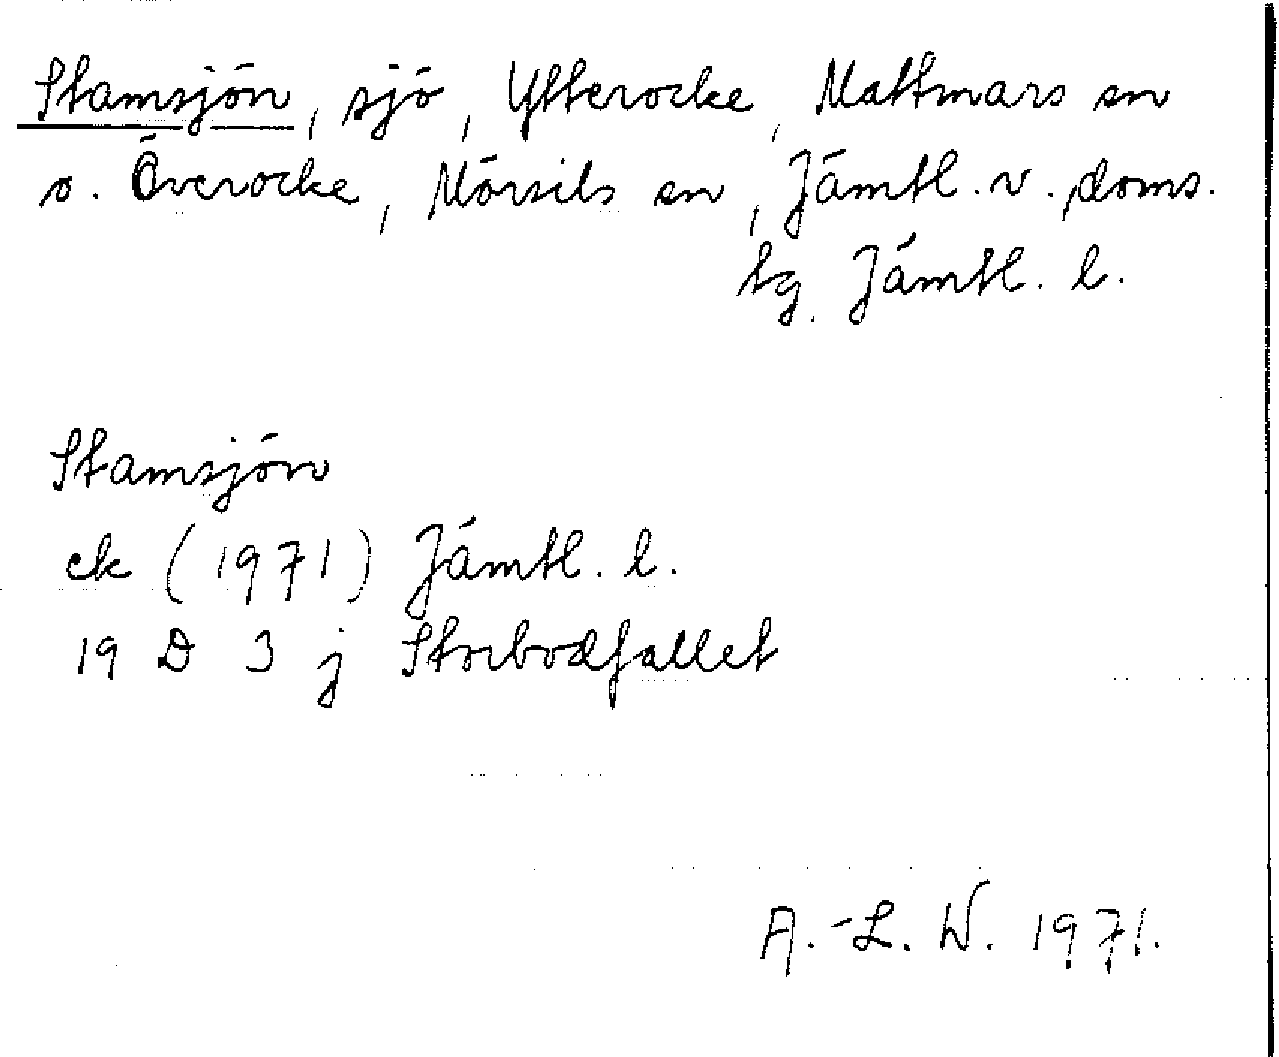 Stamsjön, sjö, Ytterocke, Mattmars sn
o. Överocke, Mörsils sn, Jämtl. v. doms.
tg. Jämtl. l.
Stamsjön
ek (1971) Jämtl. l.
19 D 3 j Storbodfallet
A.-L. W. 1971.